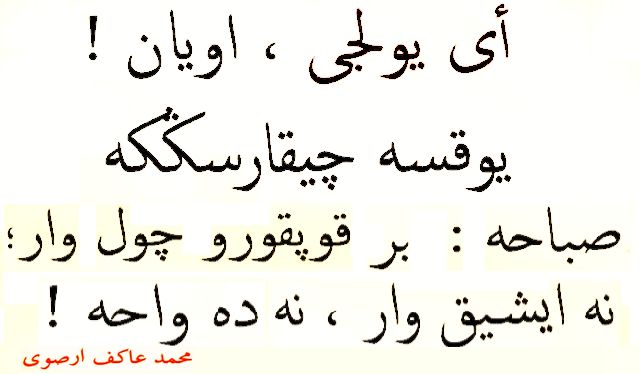 أى يولجى ، اويان !
يوقسه چيقارسڭكه
صباحه : بر قوپقورو چول وار؛
نه ايشيق وار ، نه ده واحه !
محمد عاكف ارصوى